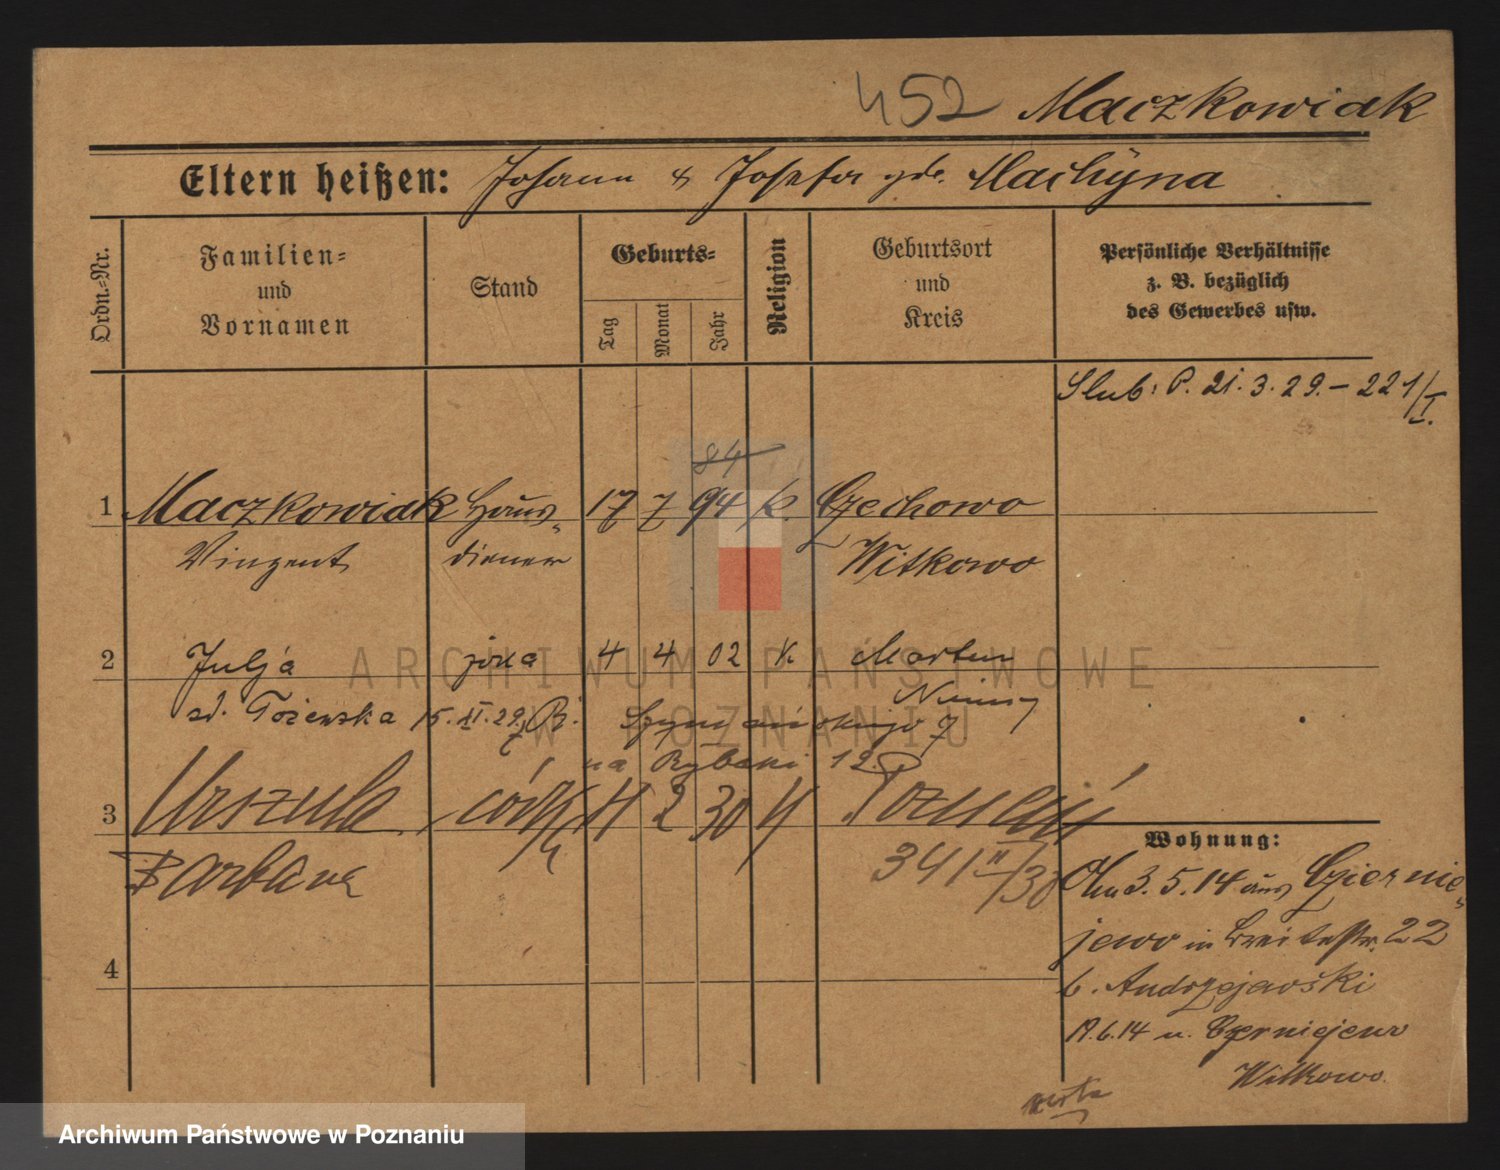 452 Maczkowiak
Eltern heißen: Johann & Josefa gb. Machyna
Ordn.-Nr.
Familien-
und
Vornamen
Stand
Geburts-
Tag
Monat
Jahr
Religion
Geburtsort
und
Kreis
Persönliche Verhältnisse
z. B. bezüglich
des Gewerbes usw.
Slub: P. 21.3.29.– 221/I.
84
1 Maczkowiak Haus- 17 7 94 k. Czechowo
Vinzent diener Witkowo
2 Julja żona 4 4 02 k
zd. 15.XI.29. 7
na Rybaki 12.
3 Urszula córka 11 2 30 k Poznań
Barbara 341 II/30
Wohnung:
Am 3.5.14 aus Cziernie-
jewo in Breitestr. 22
b. Andrzejewski
19.6.14 n. Czerniejewo
Witkowo.
4
ARCHIWUM PAŃSTWOWE
W POZNANIU
Archiwum Państwowe w Poznaniu